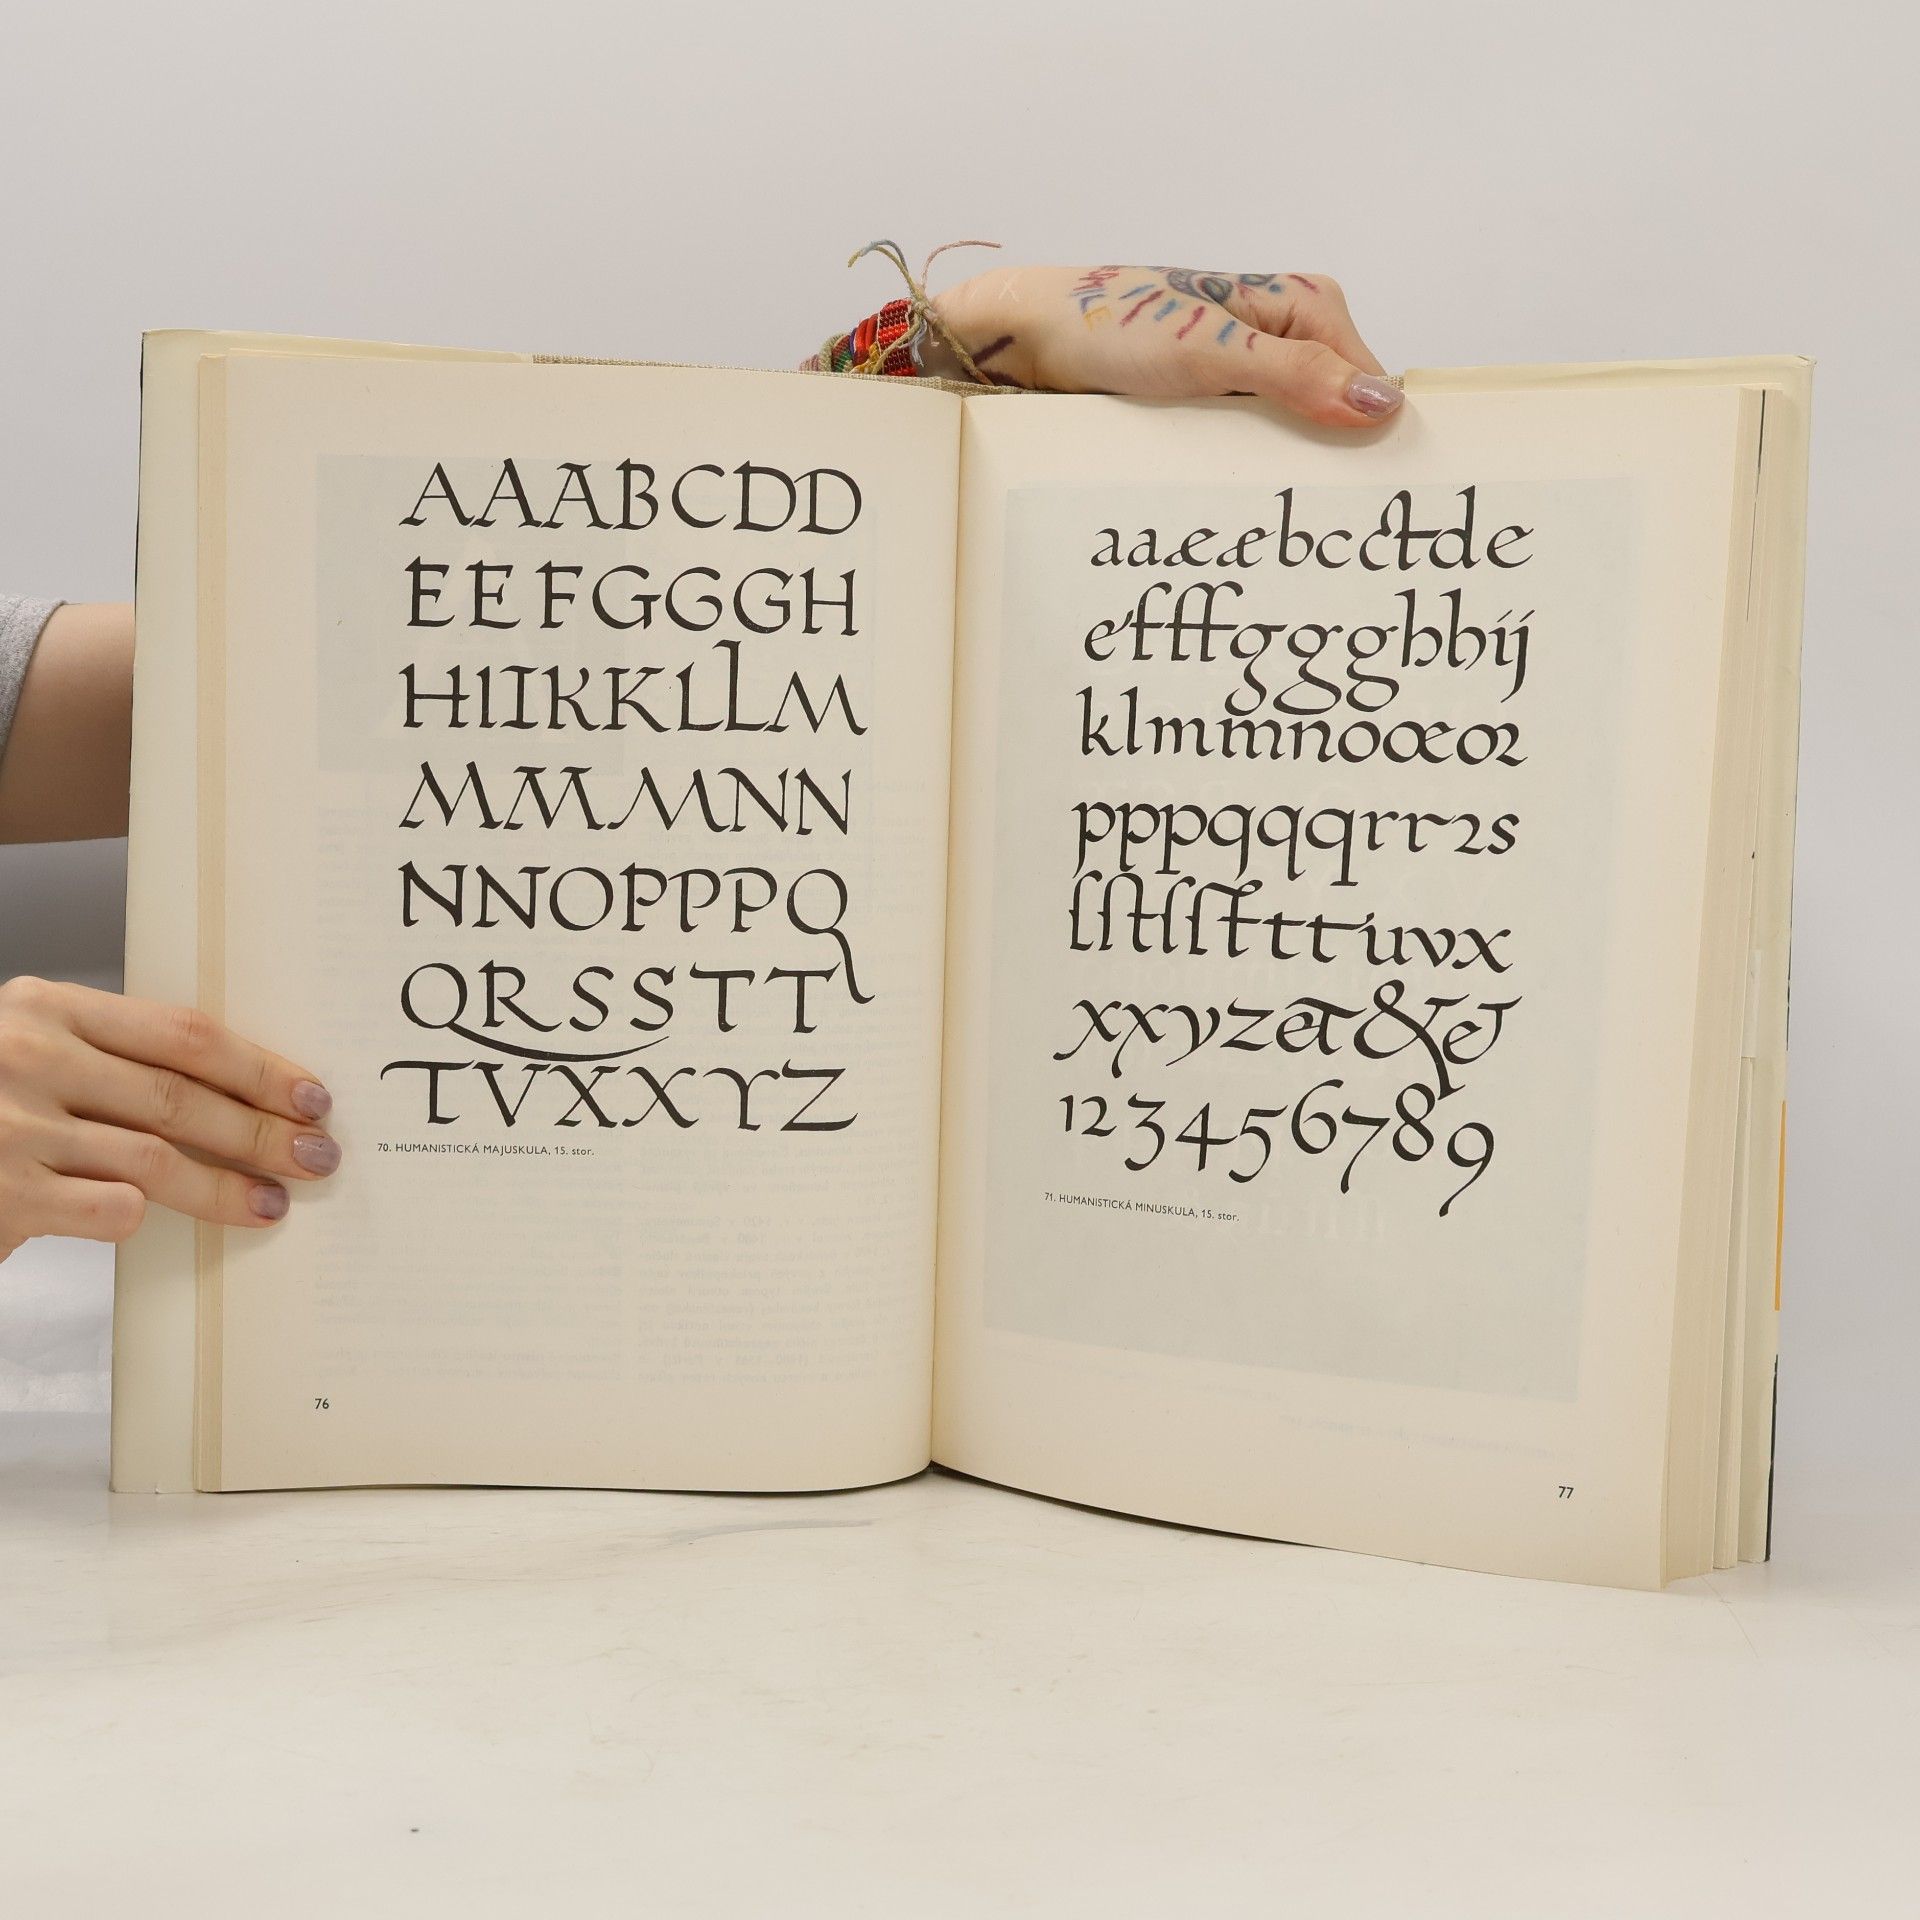 AAABCDD
EEFGGGH
HIIKKLLM
MMMNN
NNOPPPQ
QRSSTT
TVXXYZ
70. HUMANISTICKÁ MAJUSKULA, 15. stor.
76
aaææbccctde
efffggghhij
klmmnoœoꝛ
pppqqqrrꝛs
ſſtſſſtttuvx
xxyzet&&
123456789
71. HUMANISTICKÁ MINUSKULA, 15. stor.
77
SMILE